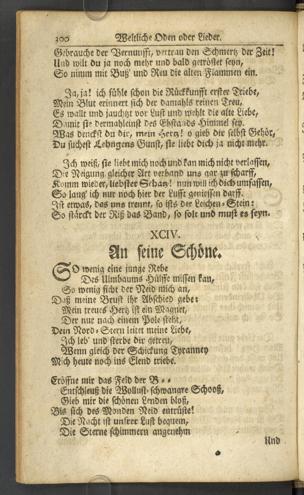 300 Weltliche Oden oder Lieder.
Gebrauche der Vernunfft, vertrau den Schmertz der Zeit!
Und wilt du ja noch mehr und bald getröstet seyn,
So nimm mit Buß und Reu die alten Flammen ein.
Ja, ja! ich fühle schon die Rückkunfft erster Triebe,
Mein Blut erinnert sich der damahls reinen Treu,
Es wallt und jauchzet vor Lust und wehlt die alte Liebe,
Damit sie dermahleinst des Ehstands Himmel sey.
Was denckst du dir, mein Hertz! o gieb dir selbst Gehör,
Du suchest Lehngens Gunst, sie liebt dich ja nicht mehr.
Ich weiß, sie liebt mich noch und kan mich nicht verlassen,
Die Neigung gleicher Art verband uns gar zu scharff,
Komm wieder, liebster Schatz! nun will ich dich umfassen,
So lang' ich nur noch hier der Lufft geniessen darff.
Ist etwas, das uns trennt, so ists der Leichen-Stein:
So stärckt der Riß das Band, so solt und must es seyn.
XCIV.
An seine Schöne.
SO wenig eine junge Rebe
Des Ulmbaums Hülffe missen kan,
So wenig ficht der Neid mich an,
Daß meine Brust ihr Abschied gebe:
Mein treues Hertz ist ein Magnet,
Der nur nach einem Pole steht,
Dein Nord-Stern leitet meine Liebe,
Ich leb' und sterbe dir getreu,
Wenn gleich der Schickung Tyranney
Mich heute noch ins Elend triebe.
Eröffne mir das Feld der B - -
Entschleuß die Wollust-schwangre Schooß,
Gieb mir die schönen Lenden bloß,
Bis sich des Monden Neid entrüste!
Die Nacht ist unsrer Lust bequem,
Die Sterne schimmern angenehm
Und